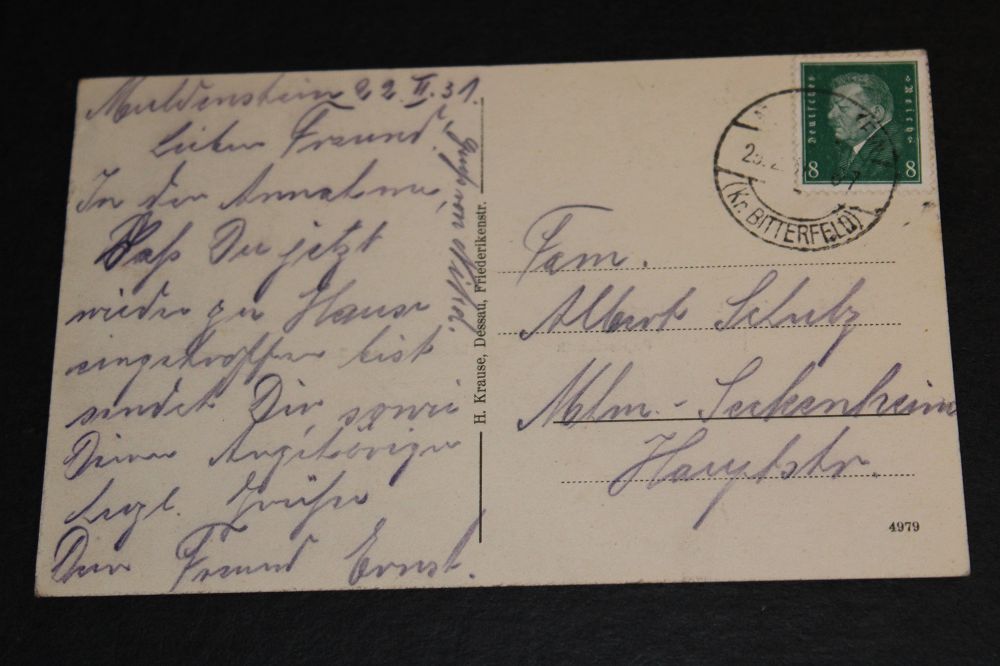 Muldenstein 22.II.31.
Lieber Freund!
In der Annahme,
Daß Du jetzt
wieder zu Hause
eingetroffen bist
sendet Dir, sowie
Deinen Angehörigen
herzl. Grüße
Dein Freund Ernst.
H. Krause, Dessau, Friederikenstr.
Deutsches Reich
8 8
(Kr. BITTERFELD)
Fam.
Albert Schulz
Mhm.-Seckenheim
Hauptstr.
4979